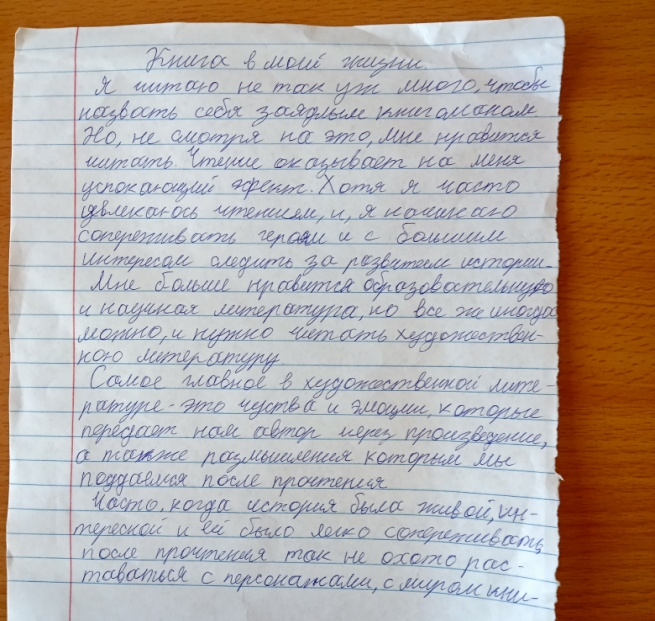 Книга в моей жизни.
Я читаю не так уж много, чтобы
назвать себя заядлым книгоманом.
Но, не смотря на это, мне нравится
читать. Чтение оказывает на меня
успокающий эфект. Хотя я часто
увлекаюсь чтением, и, я начинаю
сопереживать героям и с большим
интересом следить за развитем истории.
Мне больше нравится образовательную
и научная литература, но все же иногда
можно, и нужно читать художествен-
ную литературу
Самое главное в художественной лите-
ратуре - это чуства и эмоции, которые
передает нам автор через произведение,
а также размышления которым мы
поддаемся после прочтения
Часто, когда история была живой, ин-
тересной и ей было легко сопереживать,
после прочтения так не охото рас-
таваться с персонажами, с миром кни-